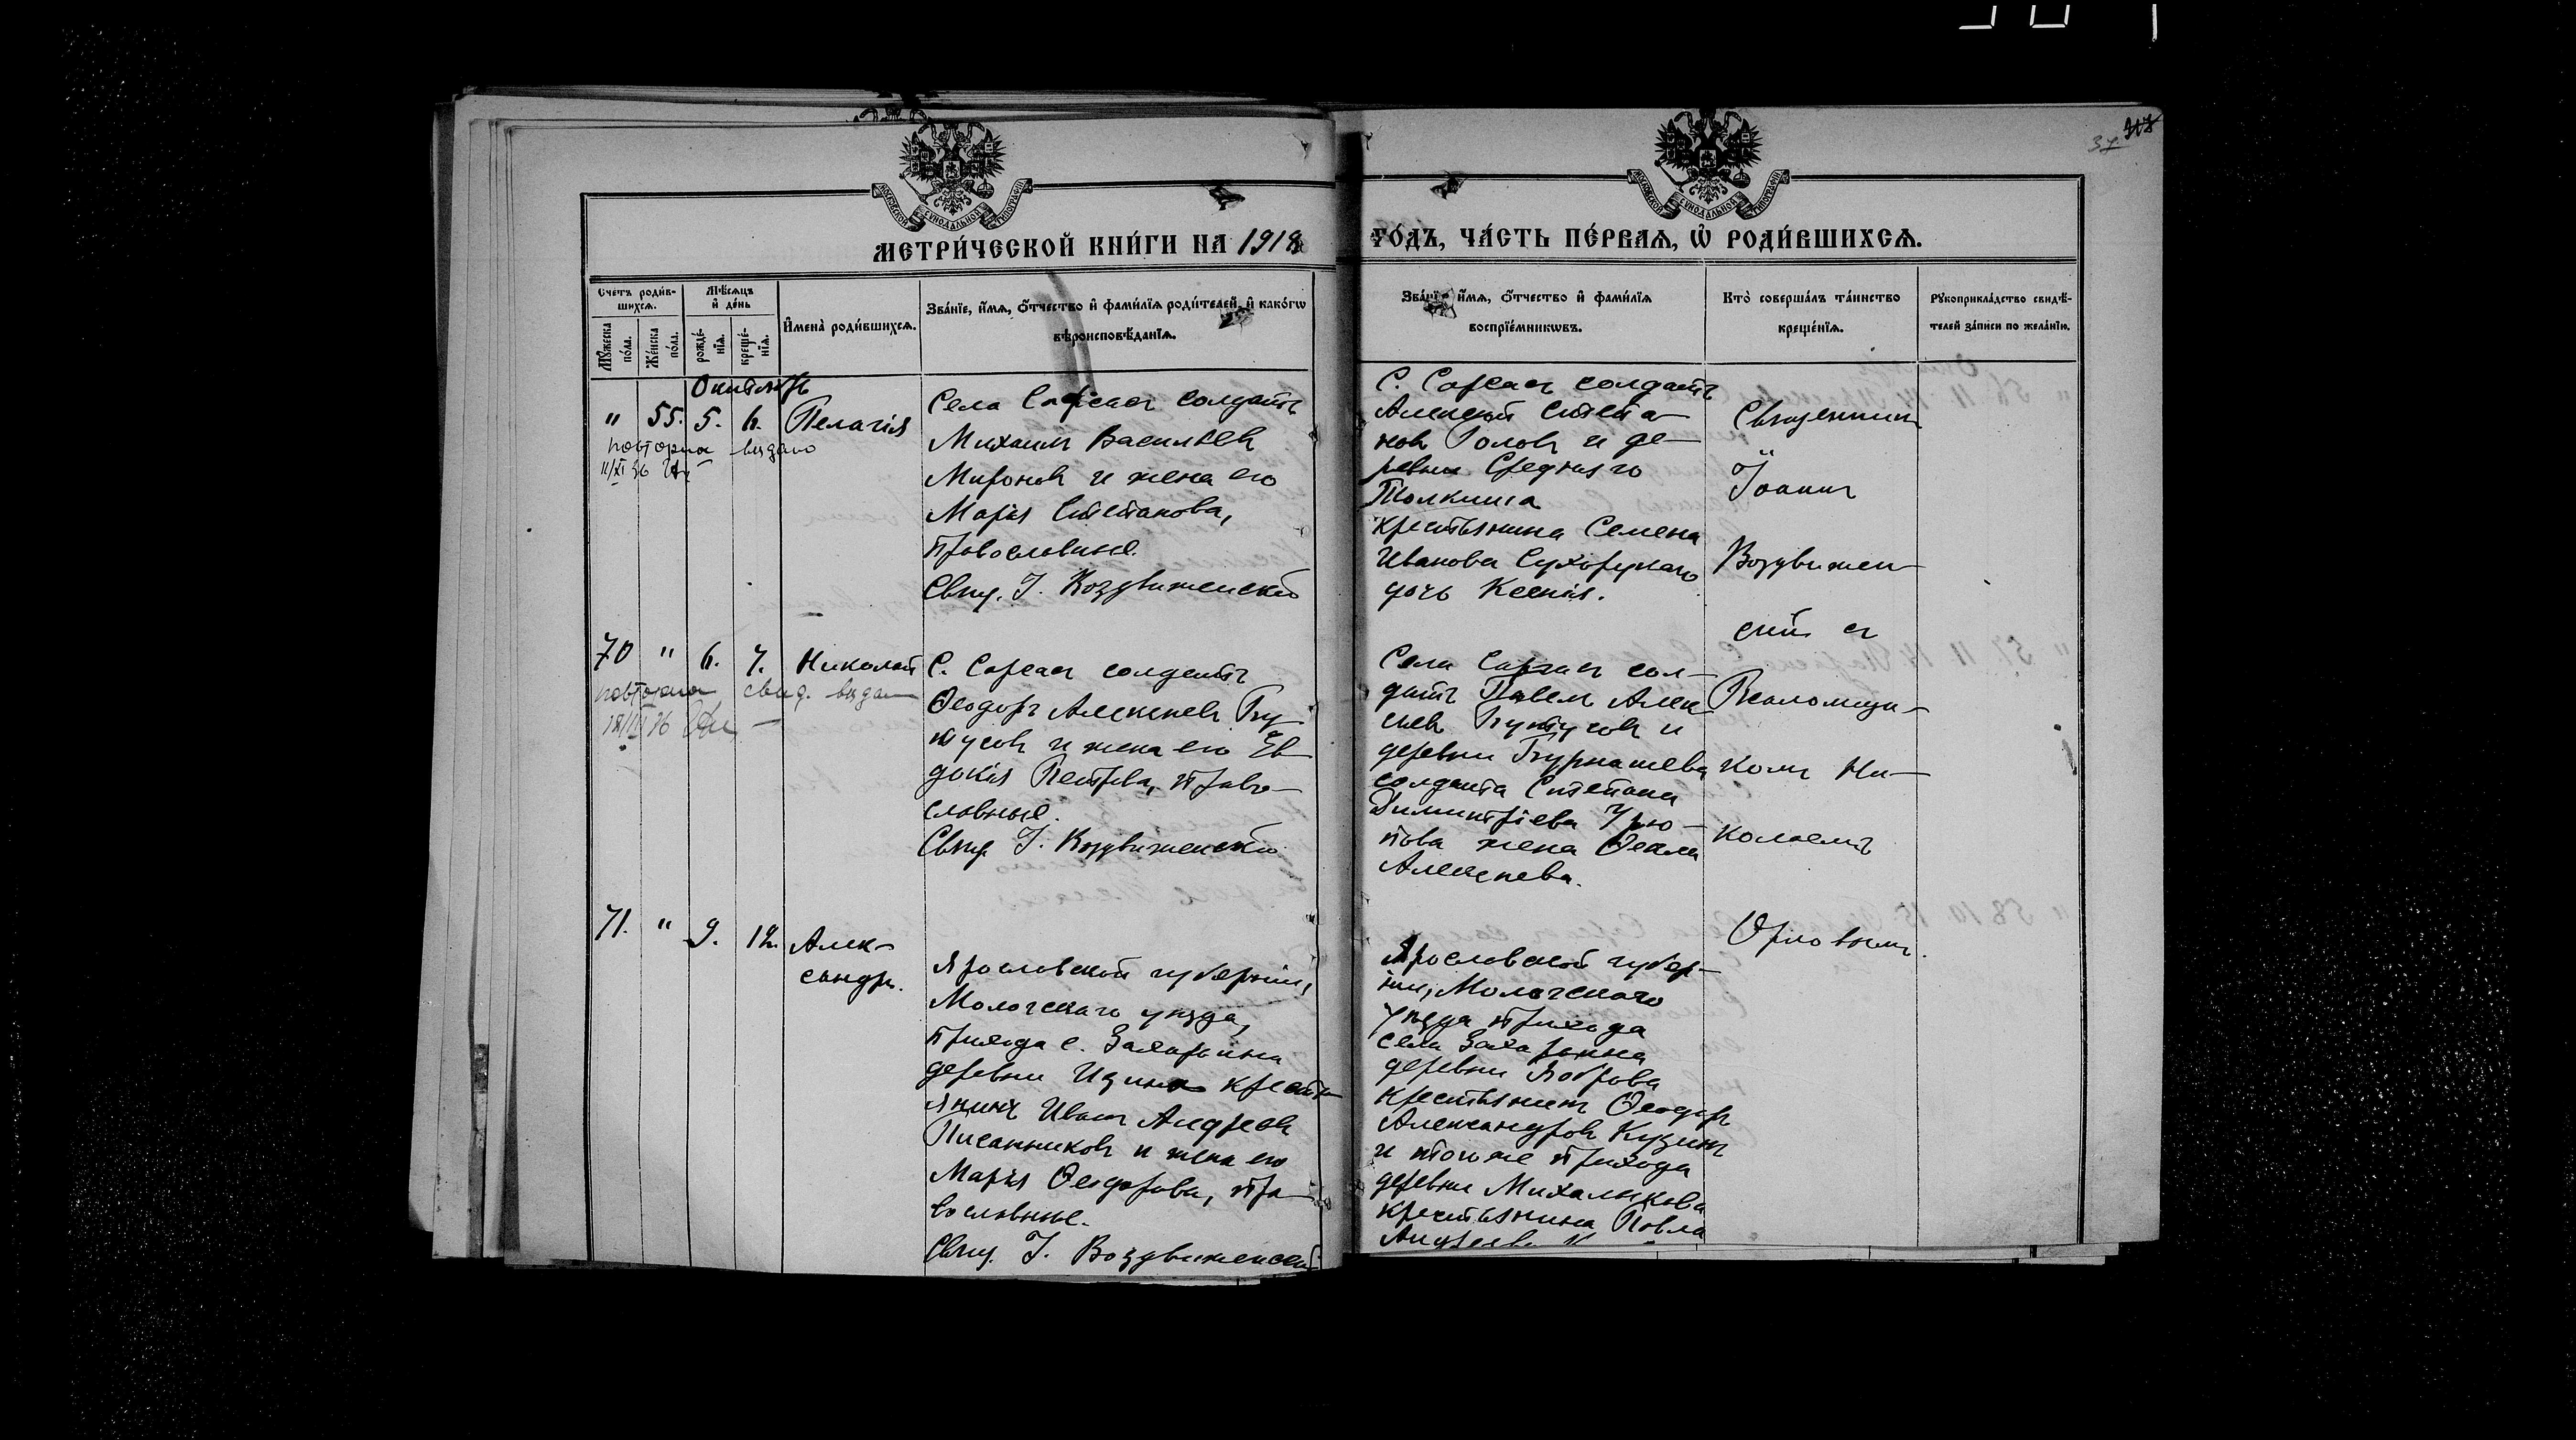 37
МЕТРИ́ЧЕСКОЙ КНИ́ГИ НА 1918
ГО́ДЪ, ЧА́СТЬ ПЕ́РВАѦ, Ѽ РОДИ́ВШИХСѦ.
Счетъ роди́в-
шихсѧ.
Мѣ́сѧцъ
и де́нь
Мꙋ́жеска
по́ла.
Же́нска
по́ла.
рожде́-
нїѧ.
креще́-
нїѧ.
Имена̀ роди́вшихсѧ.
Зва́нїе, и́мѧ, ѻ҆́тчество и фами́лїѧ роди́телей, и како́гѡ
вѣроисповѣ́данїѧ.
Зва́нїе, и́мѧ, ѻ҆́тчество и фами́лїѧ
воспрїе́мникѡвъ.
Кто̀ соверша́лъ та́инство
креще́нїѧ.
Рꙋкоприкла́дство свидѣ́-
телей за́писи по жела́нїю.
Октябрь
" 55. 5. 6. Пелагія
повторно выдано
11/XI 36
Села Сарсаз солдатъ
Михаилъ Васильевъ
Мироновъ и жена его
Марія Степанова,
православные.
Свящ. І. Воздвиженскій
С. Сарсаз солдатъ
Алексѣй Степа-
новъ Головъ и де-
ревни Средняго
Толкиша
крестьянина Семена
Иванова Сухорукаго
дочь Ксенія.
Священник
Іоаннъ
Воздвижен-
скій съ
Псаломщи-
комъ Ни-
колаемъ
Орловымъ.
70 " 6. 7. Николай
повторно свид. выдан
С. Сарсаз солдатъ
Ѳеодоръ Алексѣевъ Бу-
тусовъ и жена его Ев-
докія Петрова, право-
славные.
Свящ. І. Воздвиженскій
Села Сарсаз сол-
датъ Павелъ Алек-
сѣевъ Бутусовъ и
деревни Бурнашева
солдата Степана
Димитріева Урю-
пова жена Ѳекла
Алексѣева.
71. " 9. 12. Алек-
сандръ.
Ярославской губерніи,
Мологскаго уѣзда,
прихода с. Захарьина
деревни крестья-
янинъ Иванъ Андреевъ
Писанниковъ и жена его
Марія Ѳеодорова, пра-
вославные.
Свящ. І. Воздвиженскій
Ярославской губер-
ніи, Мологскаго
уѣзда прихода
села Захарьина
деревни
крестьянинъ Ѳеодоръ
Александровъ Кузинъ
и того же прихода
деревни Михалькова
крестьянина Павла
Андреева